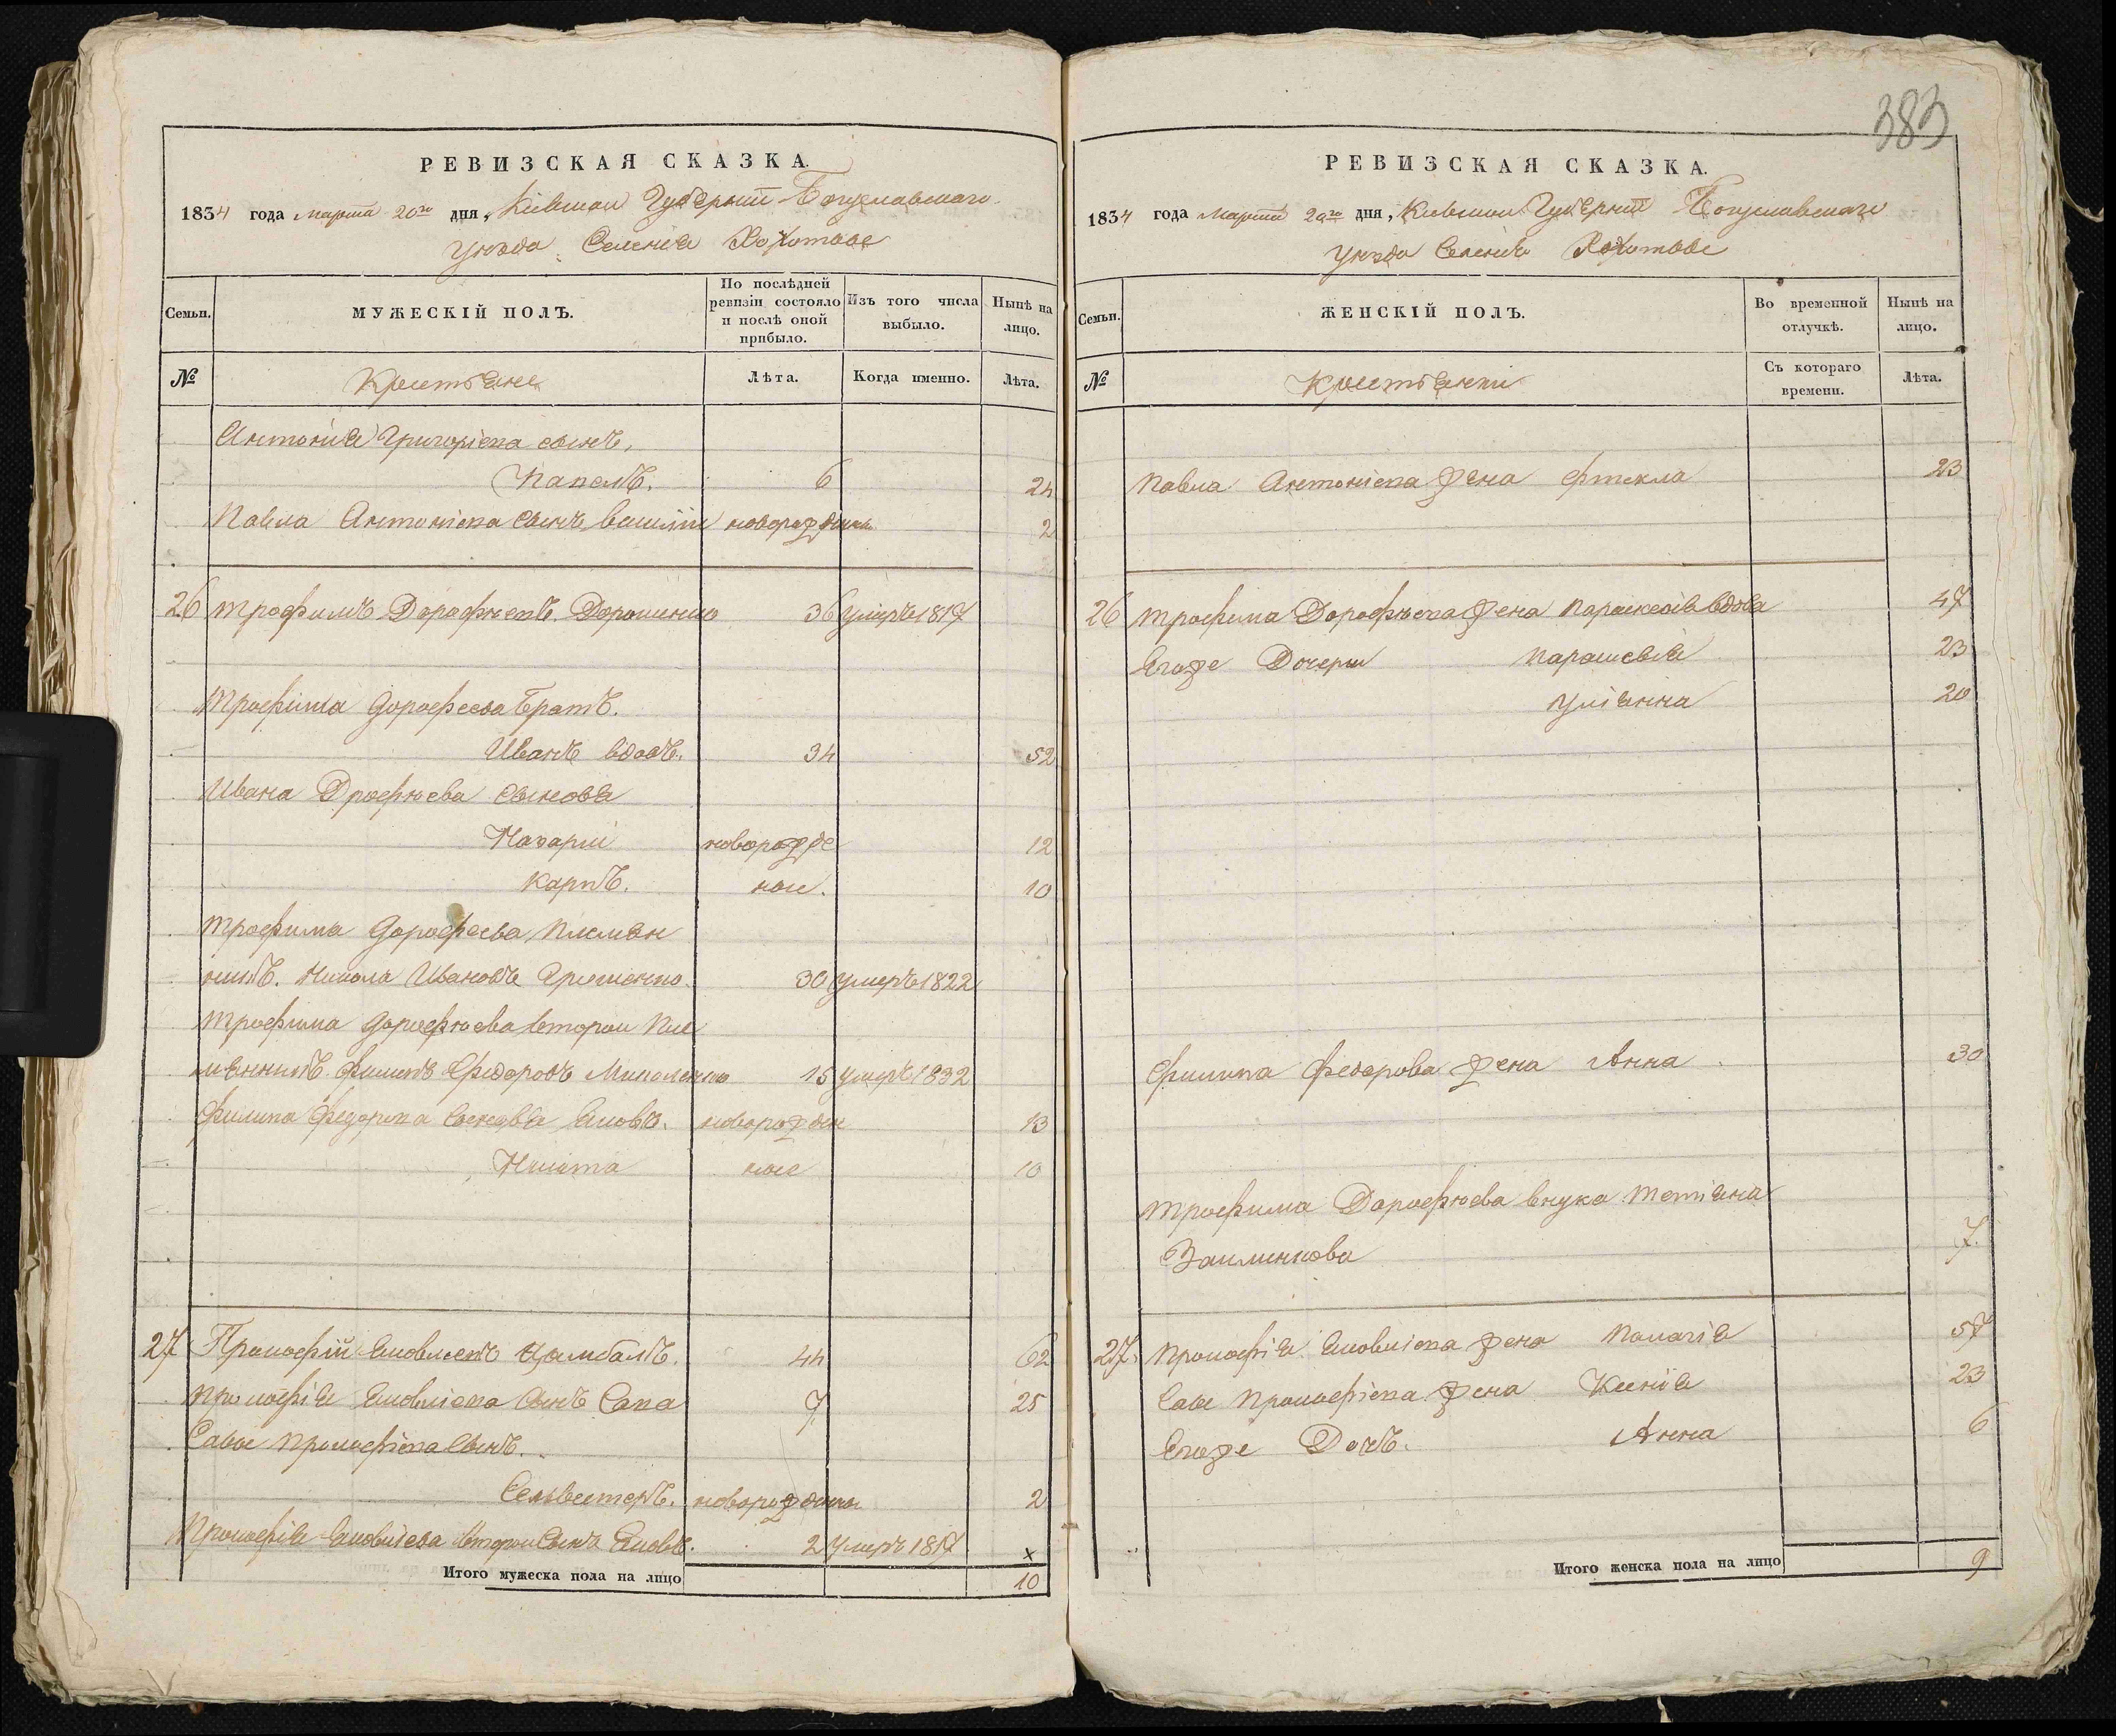 383
РЕВИЗСКАЯ СКАЗКА.
1834 года марта 20го дня, Кіевской Губерніи Богуславскаго
Уезда Селенія Хохитвы
Семьи.
МУЖЕСКІЙ ПОЛЪ.
По послѣдней ревизіи состояло и послѣ оной прибыло.
Изъ того числа выбыло.
Нынѣ на лицо.
№
Крестьяне
Лѣта.
Когда именно.
Лѣта.
Антонія Григоріева сынъ,
Павелъ. 6 24
Павла Антоніева сынъ Василій новорожденны 2
26 Трофимъ Дорофѣевъ Дорошенко 36 умеръ 1817
Трофима Дорофеева братъ.
Иванъ вдовъ. 34 52
Ивана Дрофѣева сыновья
Назарій новорожде 12
Карпъ. ные. 10
Трофима Дорофеева племян
никъ. Никола Ивановъ 30 умеръ 1822
Трофима Дорофѣева второй пле
мянникъ Филипъ Федоровъ Миколенко 15 умеръ 1832
Филипа Федорова сыновья Яковъ. новорожден 13
Никита ные 10
27 Прокофій Яковлевъ Цымбалъ. 44 62
Прокофія Яковлева сынъ Сава 7 25
Савы Прокофіева сынъ.
Сельвестеръ. новорожденны 2
Прокофія Яковлева второй сынъ Яковъ. 2 умеръ 1817 х
Итого мужеска пола на лицо 10
РЕВИЗСКАЯ СКАЗКА.
1834 года марта 20го дня, Кіевской Губерніи Богуславскаго
Уезда Селенія Хохитвы
Семьи.
ЖЕНСКІЙ ПОЛЪ.
Во временной отлучкѣ.
Нынѣ на лицо.
№
Крестьянки
Съ котораго времени.
Лѣта.
Павла Антоніева жена Фтекла 23
26 Трофима Дорофѣева жена Параскевія вдова 47
Егоже Дочери Парасковія 23
Уліянна 20
Филипа Федорова жена Анна 30
Трофима Дорофѣева внука Тетіяна
7.
27. Прокофія Яковліева жена Палагія 57
Савы Прокофіева жена Ксенія 23
Егоже Дочъ. Анна 6
Итого женска пола на лицо 9